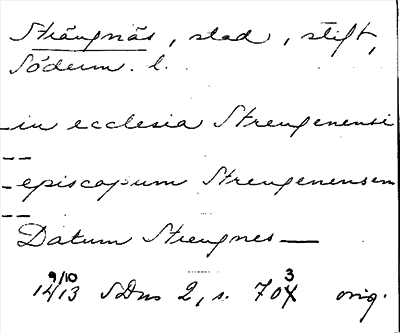 Strängnäs, stad, stift,
Söderm. l.
-in ecclesia Strengenensi
--
-episcopum Strengenensem
--
Datum Strengnes—
9/10 1413 SDns 2, s. 703 orig.